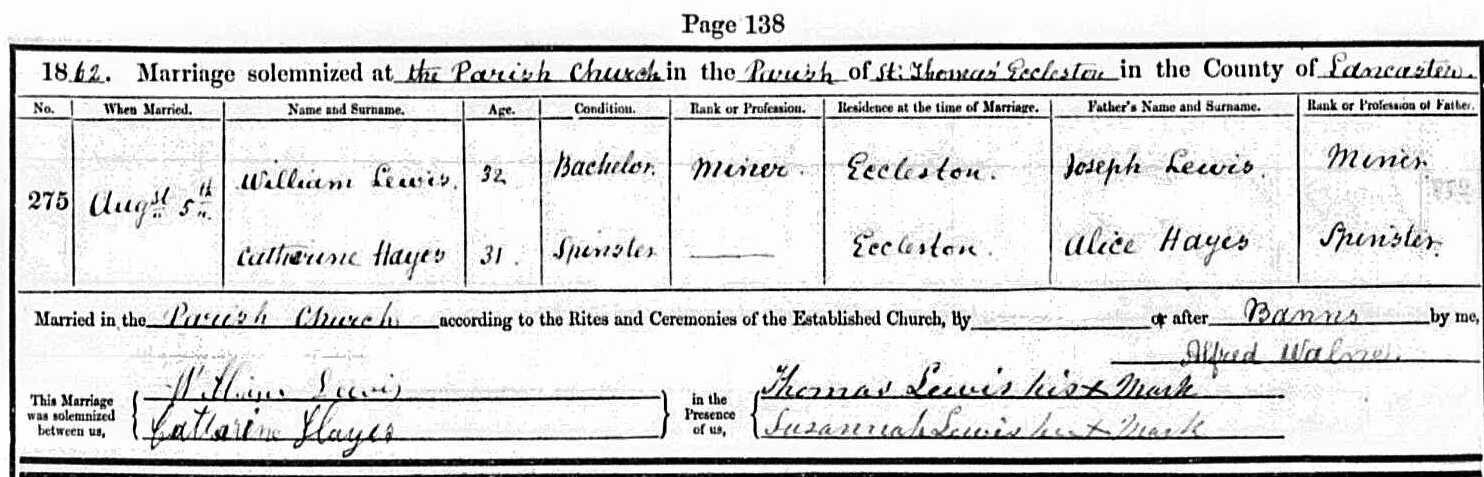 Page 138
1862. Marriage solemnized at the Parish Church in the Parish of St. Thomas' Eccleston in the County of Lancaster.
No. When Married. Name and Surname. Age. Condition. Rank or Profession. Residence at the time of Marriage. Father's Name and Surname. Rank or Profession of Father.
275 Augst 5th William Lewis. 32 Bachelor. Miner. Eccleston. Joseph Lewis. Miner.
Catherine Hayes 31. Spinster Eccleston. Alice Hayes Spinster.
Married in the Parish Church according to the Rites and Ceremonies of the Established Church, By or after Banns by me,
Alfred Walne.
This Marriage was solemnized between us, William Lewis in the Presence of us, Thomas Lewis his x Mark
Catharine Hayes Susannah Lewis her x Mark